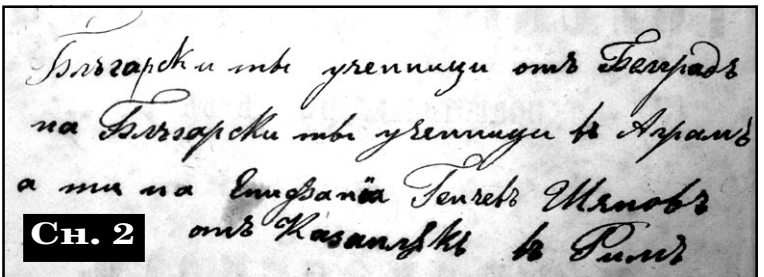 Български ты ученници отъ Белградъ
на Български ты ученници въ Аграмъ
а ти на Епифанїа Генчевъ Шяповъ
отъ Казанлѣкъ въ Римъ
Сн. 2